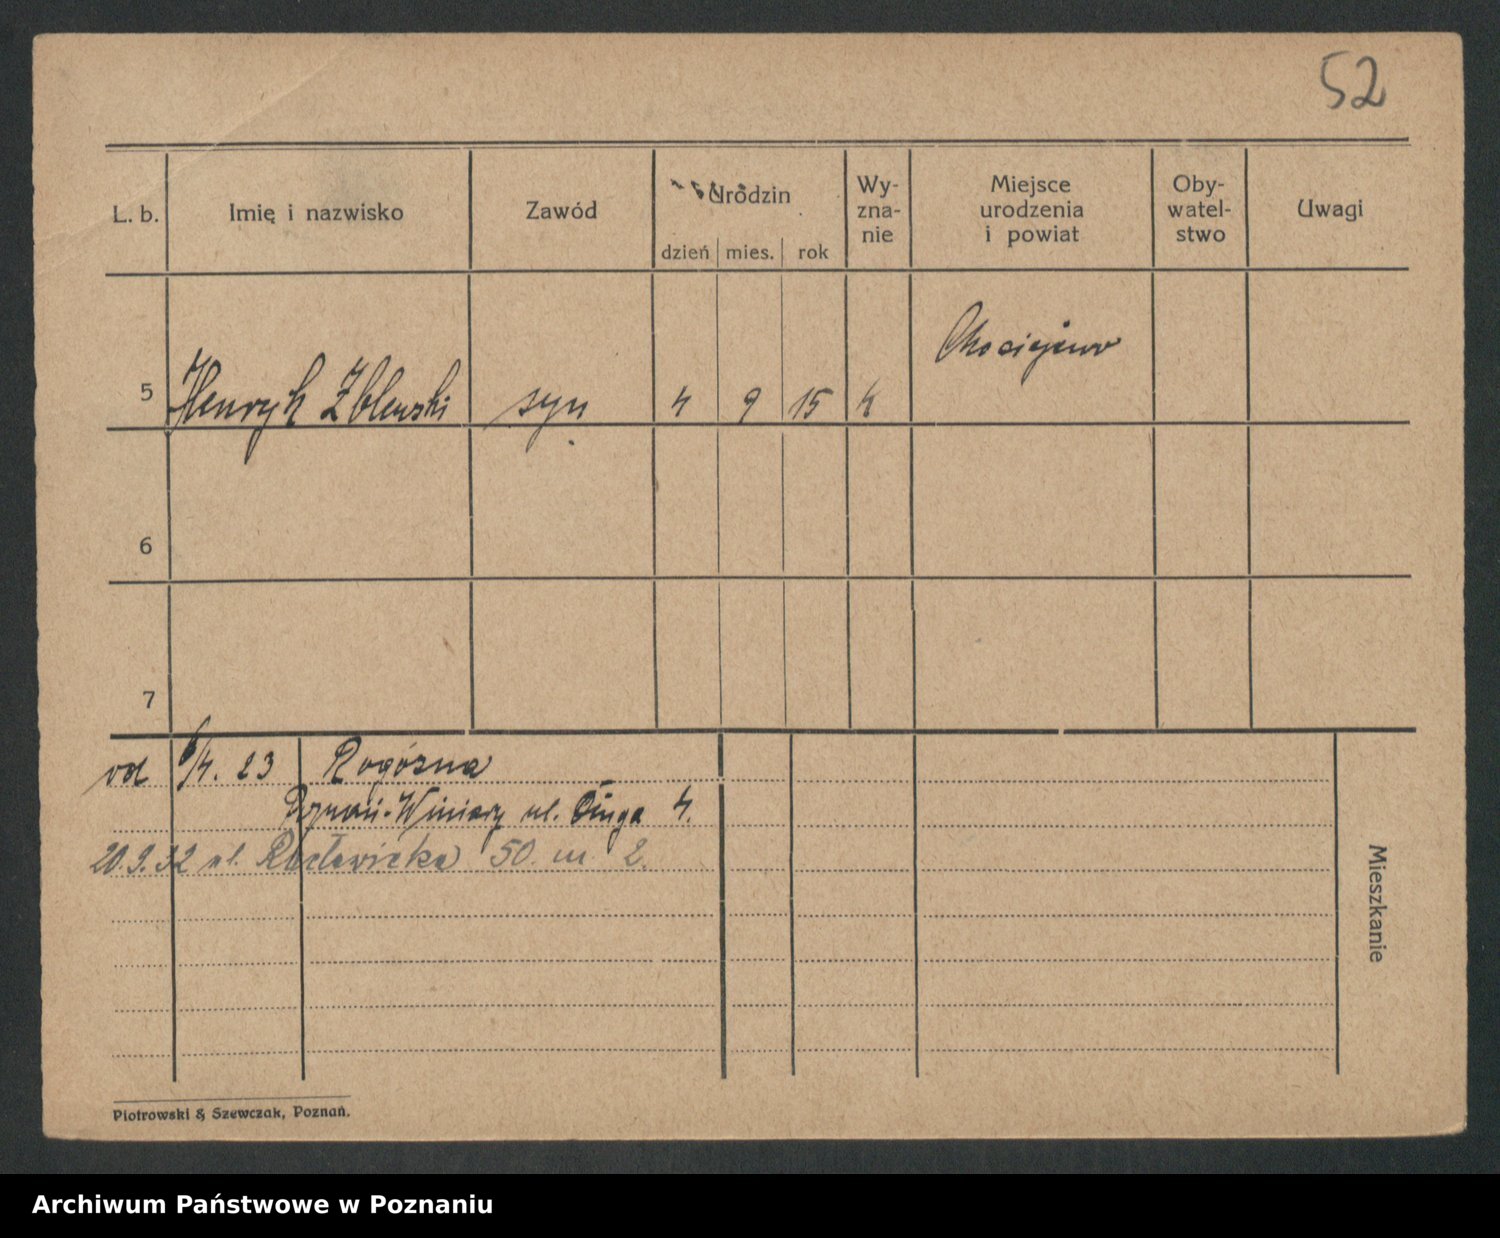 52
L. b. Imię i nazwisko Zawód Urodzin dzień mies. rok Wy-zna-nie Miejsce urodzenia i powiat Oby-watel-stwo Uwagi
5 Henryk Zblewski syn 4 9 15 k
6
7
od 6/4. 23 Rogózna
Poznań-Winiary ul. Długa 4.
20.9.32 ul. Racławicka 50. m 2.
Mieszkanie
Piotrowski & Szewczak, Poznań.
Archiwum Państwowe w Poznaniu